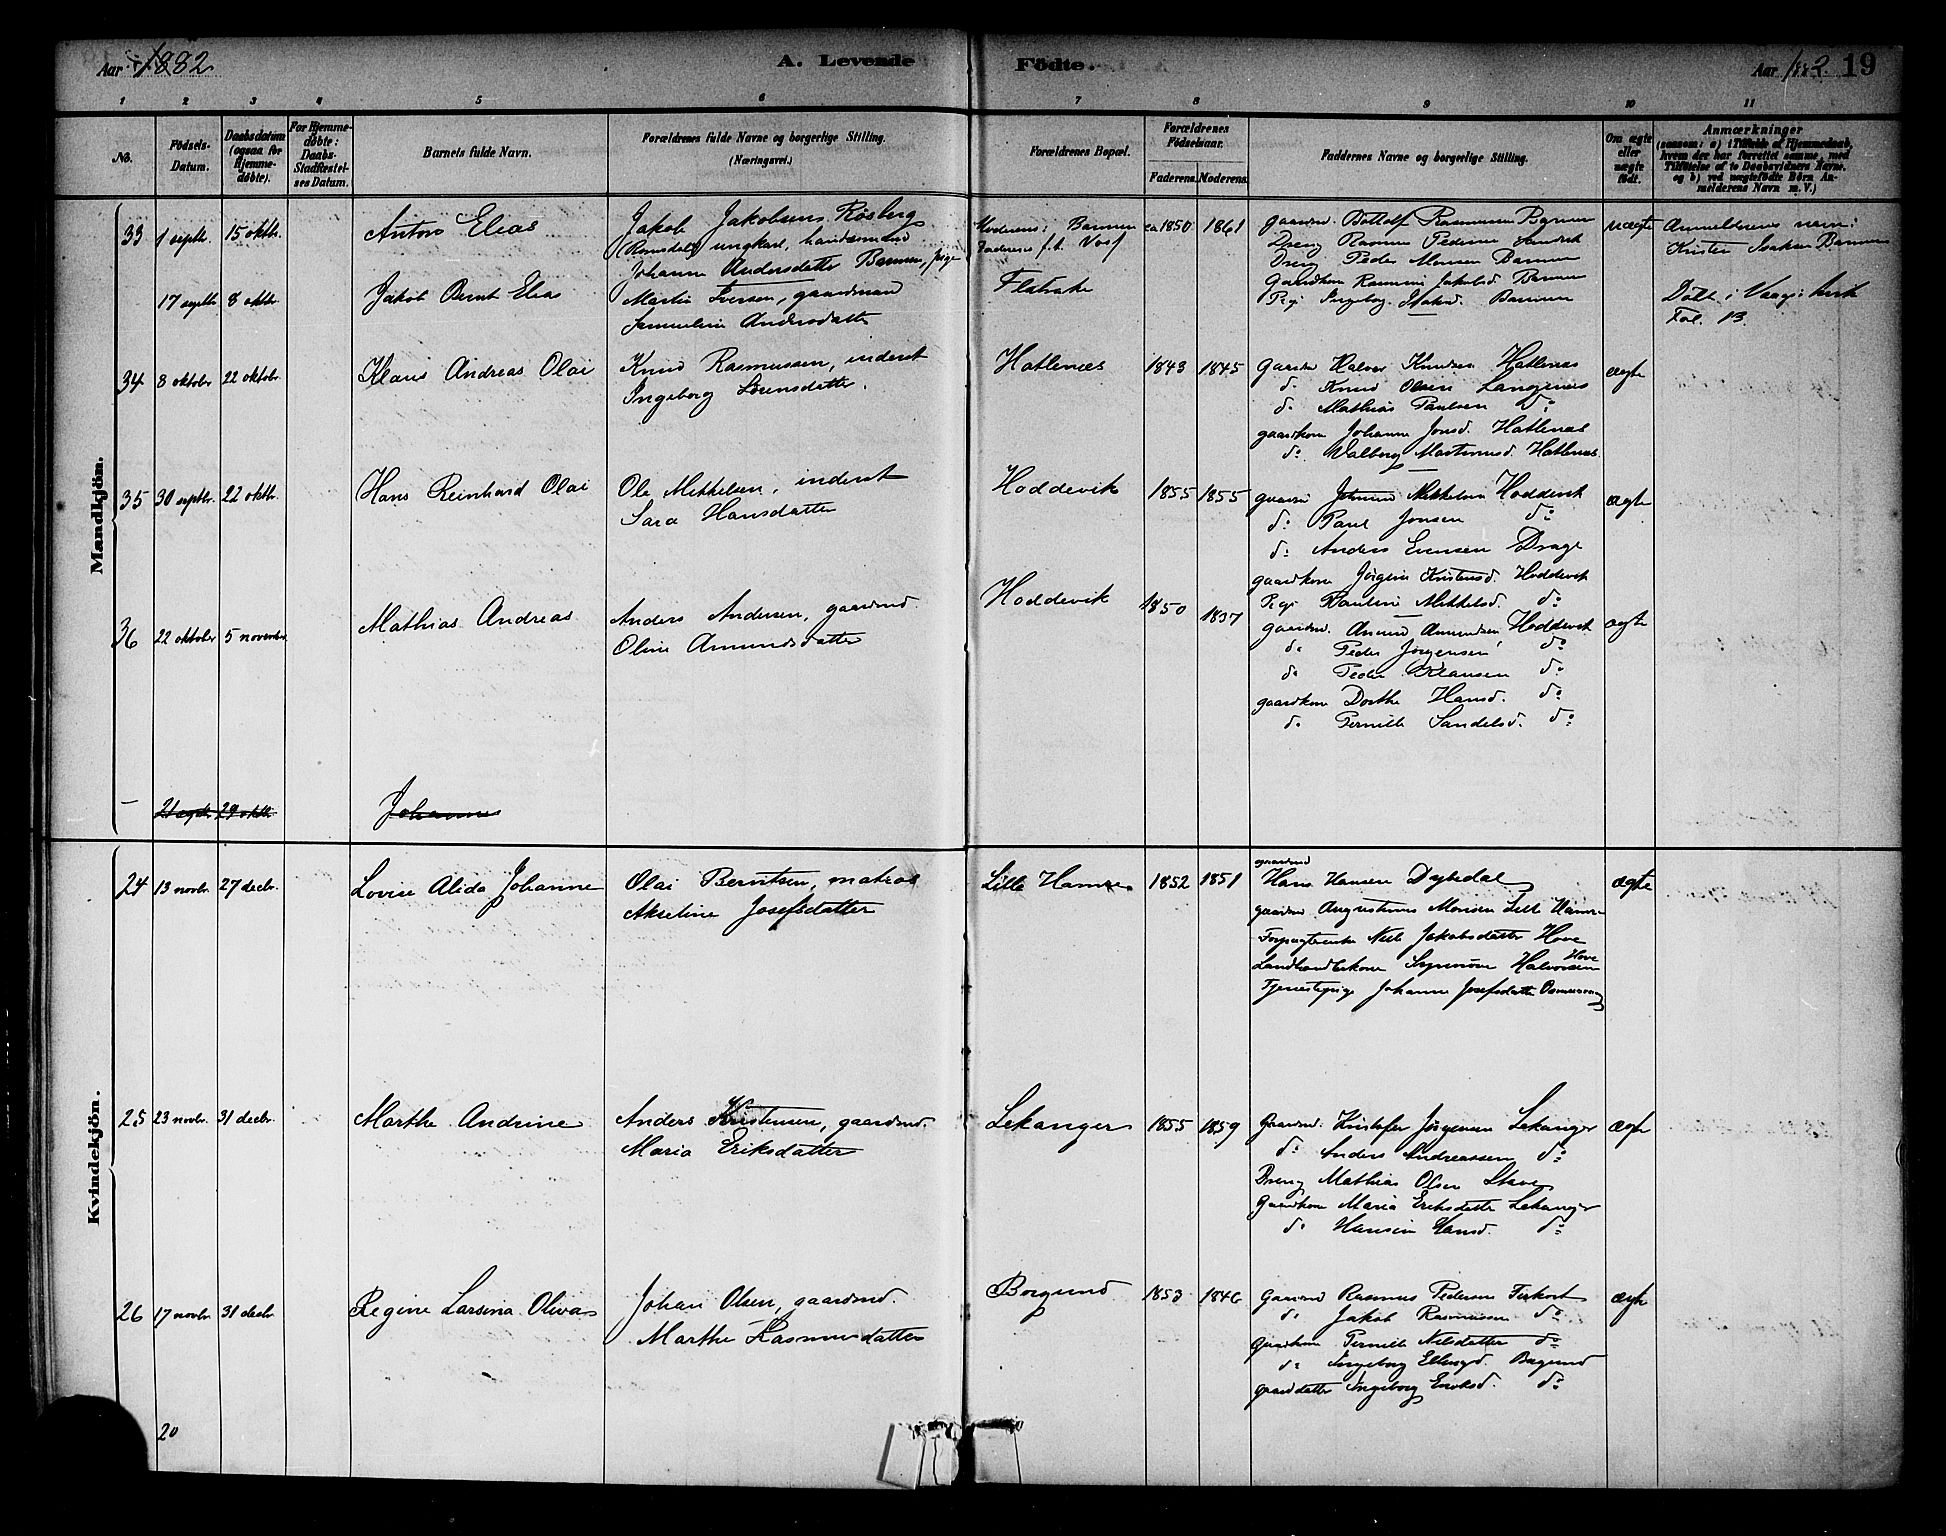 Aar 1882
A. Levende
Födte.
Aar 1882. 19
1 2 3 4 5 6 7 8 9 10 11
No.
Födsels-
Datum.
Daabsdatum
(ogsaa for
Hjemme-
døbte).
For Hjemme-
døbte:
Daabs-
Stadfæstel-
ses Datum.
Barnets fulde Navn.
Forældrenes fulde Navne og borgerlige Stilling.
(Næringsvei.)
Forældrenes Bopæl.
Forældrenes
Födselsaar.
Faderens. Moderens.
Faddernes Navne og borgerlige Stilling.
Om ægte
eller
uægte
födt.
Anmærkninger
(saasom: a) i Tilfælde af Hjemmedaab,
hvem der har forrettet samme, med
Tilföielse af to Daabsvidners Navne,
og b) ved uægtefödte Börn An-
melderens Navn m. V.)
Mandkjön.
33 1 septbr. 15 oktbr. Anton Elias
Jakob Jakobsens Røsberg
Romsdal, ungkarl, handelsmand
Johanne Andersdatter Barmen, pige
Moderens: Barmen
Faderens f.t. Vosf
ca 1850. 1861
gaardmd. Bottolf Rasmussen Barmen
Dreng Rasmus Pedersen Sandvik
Dreng Peder Monsen Barmen
Gaardkone Rasmine Jakobsd. Barmen
Pige Ingeborg Isaksd. Barmen
uægte
Anmelderens navn:
Krister Isaksen Barmen
17 septbr 8 oktbr. Jakob Bernt Elias
Martin Iversen, gaardmand
Samueline Andersdatter
Flatrake
Døbt i Vaagsø kirk
Fol. 13.
34 8 oktobr 22 oktobr. Klaus Andreas Olai
Knud Rasmussen, inderst
Ingeborg Sørensdatter.
Hatlenæs 1843 1845
Gaardm Halvor Knudsen Hatlenæs
do Knud Olsen Langenæs
do Mathias Paulsen do
gaardkone Johanne Jonsd. Hatlenæs
do Valborg Mortensd. Hatlenæs.
ægte
35 30 septbr. 22 oktbr. Hans Reinhard Olai
Ole Mikkelsen, inderst
Sara Hansdatter
Hoddevik 1855 1855
gaardm Mikkelsen Hoddevik
do Paul Jonsen do
do Anders Evensen Drage
gaardkone Jørgine Kristensd. Hoddevik
Pige Pauline Mikkelsd. do
ægte
36 22 oktobr 5 novembr. Mathias Andreas
Anders Andersen, gaardmd.
Oline Amundsdatter
Hoddevik 1850 1857
Gaardmd. Amund Amundsen Hoddevik
do Peder Jørgensen do
do Peder Klausen do
gaardkone Dorthe Hansd. do
do Pernille Sandelsd. do
ægte
– 21 septbr. 29 oktbr. Johannes
Kvindekjön.
24 13 novbr. 27 decbr. Lovise Alida Johanne
Olai Berntsen, matros
Akseline Josefsdatter
Lille Hamre 1852 1851
gaardmd
Hans Hansen Dybedal
gaardmd Augustinus Monsen Lille Hamre
Forpagterenke Nille Jakobsdatter Hove
Landhandlerkone Halvorsen Hove
Tjenestepige Johanne Josefsdatter
ægte
25 23 novbr. 31 decbr. Marthe Andrine
Anders Kristensen, gaardmd.
Maria Eriksdatter
Lekanger 1855 1859
Gaardmd. Kristofer Jørgensen Lekanger
do Anders Andreassen do
Dreng Mathias Olsen Stave
Gaardkone Maria Eriksdatter Lekanger
do Hansine Hansd. do
ægte
26 17 novbr. 31 decbr Regine Larsina Oliva
Johan Olsen, gaardmd.
Marthe Rasmusdatter
Borgund 1853 1846
Gaardmd Rasmus Pedersen
do Jakob Rasmussen do
gaardkone Pernille Nilsdatter do
do Ingeborg Ellingsd. Borgund
gaarddatter Ingeborg do
ægte
20